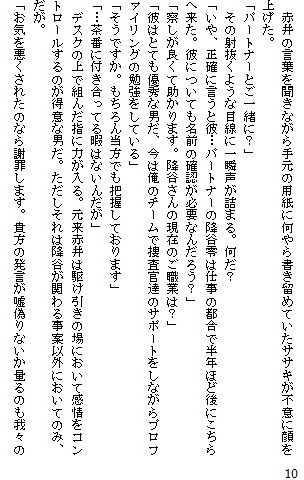 赤井の言葉を聞きながら手元の用紙に何やら書き留めていたササキが不意に顔を
上げた。
「パートナーとご一緒に？」
その射抜くような目線に一瞬声が詰まる。何だ？
「いや、正確に言うと彼…パートナーの降谷零は仕事の都合で半年ほど後にこちら
へ来た。彼についても名前の確認が必要なんだろう？」
「察しが良くて助かります。降谷さんの現在のご職業は？」
「彼はとても優秀な男だ、今は俺のチームで捜査官達のサポートをしながらプロフ
ァイリングの勉強をしている」
「そうですか。もちろん当方でも把握しております」
「…茶番に付き合ってる暇はないんだが」
デスクの上で組んだ指に力が入る。元来赤井は駆け引きの場において感情をコン
トロールするのが得意な男だ。ただしそれは降谷が関わる事案以外においてのみ、
だが。
「お気を悪くされたのなら謝罪します。貴方の発言が嘘偽りないか量るのも我々の
10